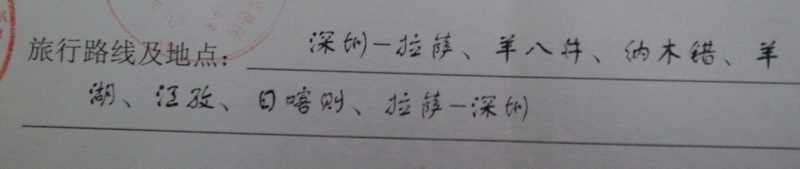 旅行路线及地点：深圳－拉萨、羊八井、纳木错、羊
湖、江孜、日喀则、拉萨－深圳